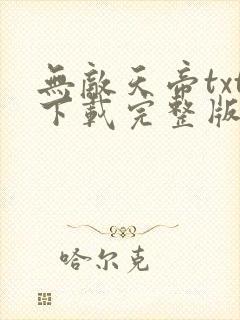 無敵天帝txt
下載完整版
哈尔克